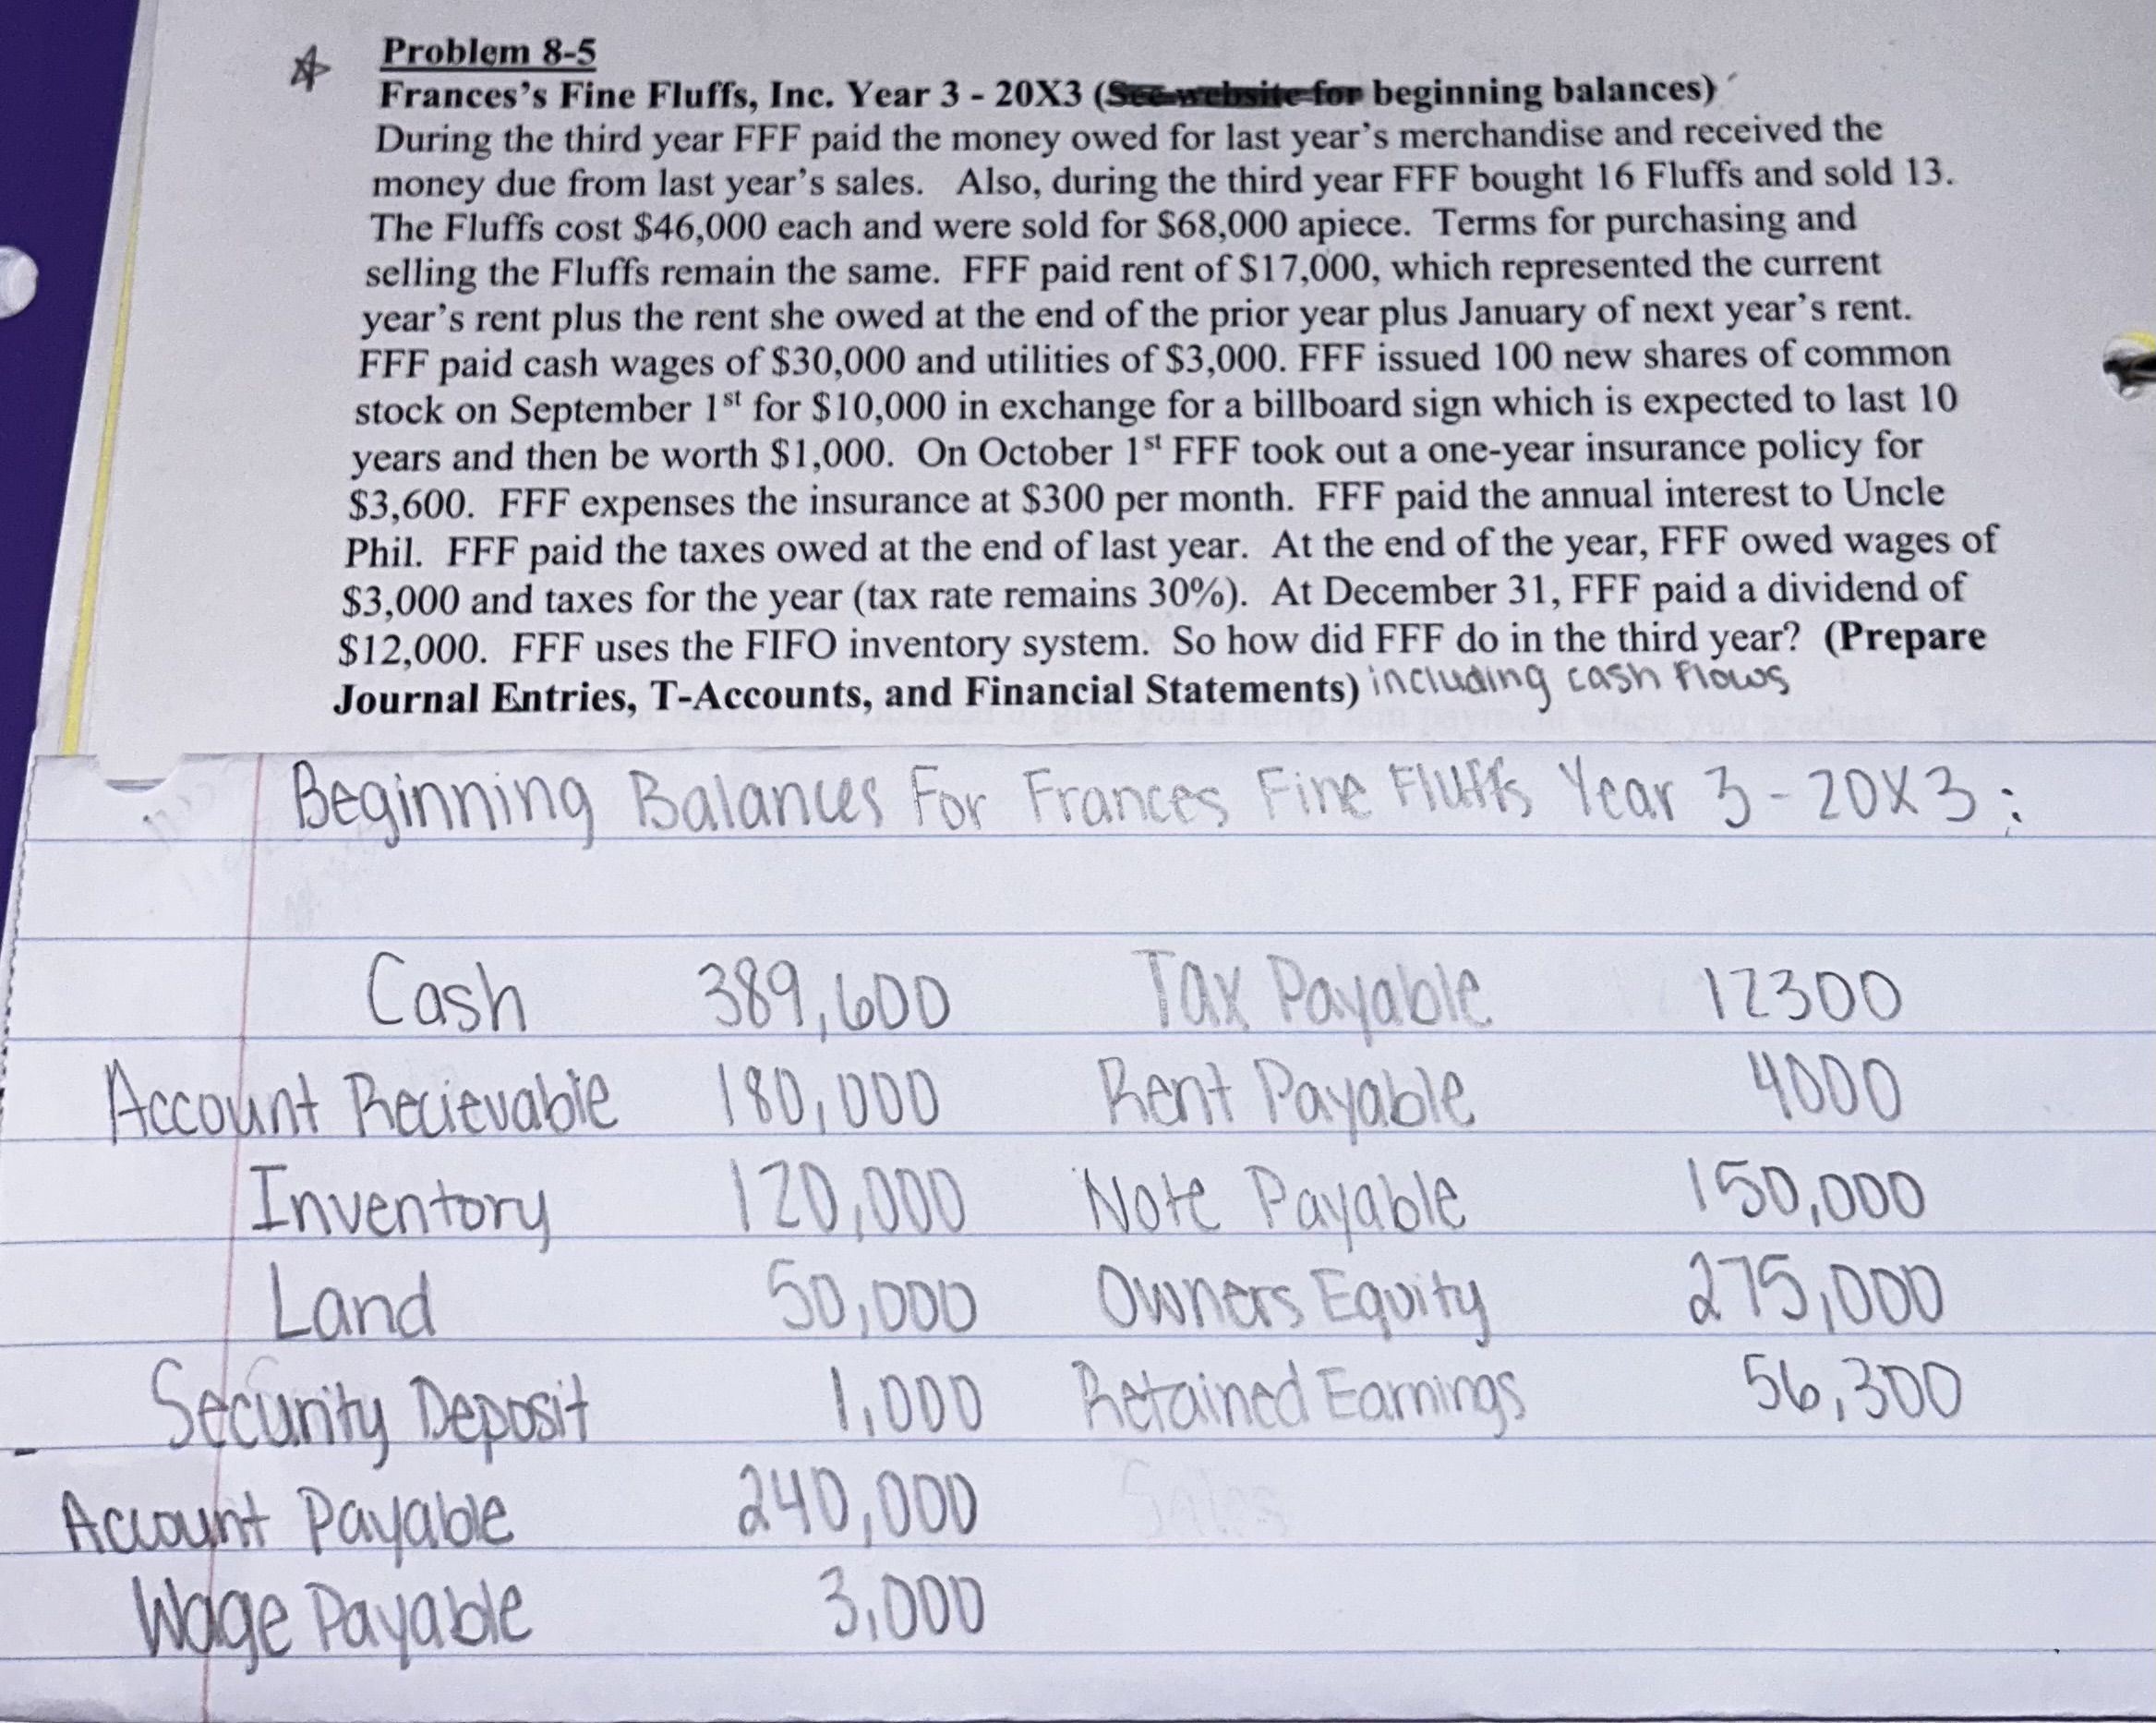 Problem 8-5
Frances's Fine Fluffs, Inc. Year 3 - 20X3 (See website for beginning balances)
During the third year FFF paid the money owed for last year's merchandise and received the
money due from last year's sales. Also, during the third year FFF bought 16 Fluffs and sold 13.
The Fluffs cost $46,000 each and were sold for $68,000 apiece. Terms for purchasing and
selling the Fluffs remain the same. FFF paid rent of $17,000, which represented the current
year's rent plus the rent she owed at the end of the prior year plus January of next year's rent.
FFF paid cash wages of $30,000 and utilities of $3,000. FFF issued 100 new shares of common
stock on September 1st for $10,000 in exchange for a billboard sign which is expected to last 10
years and then be worth $1,000. On October 1st FFF took out a one-year insurance policy for
$3,600. FFF expenses the insurance at $300 per month. FFF paid the annual interest to Uncle
Phil. FFF paid the taxes owed at the end of last year. At the end of the year, FFF owed wages of
$3,000 and taxes for the year (tax rate remains 30%). At December 31, FFF paid a dividend of
$12,000. FFF uses the FIFO inventory system. So how did FFF do in the third year? (Prepare
Journal Entries, T-Accounts, and Financial Statements) including cash flows
Beginning Balances For Frances Fine Fluffs Year 3 - 20X3 :
Cash 389,600 Tax Payable 12300
Account Recievable 180,000 Rent Payable 4000
Inventory 120,000 Note Payable 150,000
Land 50,000 Owners Equity 275,000
Security Deposit 1,000 Retained Earnings 56,300
Account Payable 240,000 Sales
Wage Payable 3,000